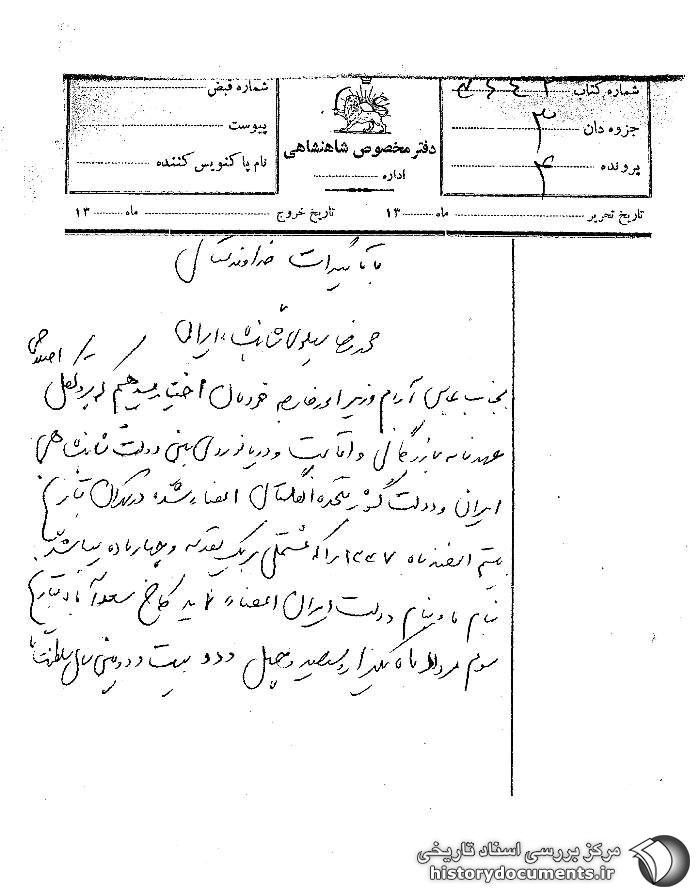 شماره کتاب
جزوه دان ۳
پرونده ۴
دفتر مخصوص شاهنشاهی
اداره
شماره قبض
پیوست
نام پاکنویس کننده
تاریخ تحریر ماه ۱۳
تاریخ خروج ماه ۱۳
با تأییدات خداوند متعال
محمدرضا پهلوی شاهنشاه ایران
اصلاحی
بجناب عباس آرام وزیر امور خارجه خودمان اختیار میدهیم که پروتکل
عهدنامه بازرگانی و اقامت و دریانوردی بین دولت شاهنشاهی
ایران و دولت کشور متحده انگلستان امضاء شده در تهران بتاریخ
بیستم اسفندماه ۱۳۳۷ را که مشتمل بر یک مقدمه و چهار ماده میباشد
بنام ما و بنام دولت ایران امضاء نماید کاخ سعدآباد بتاریخ
سوم مرداد ماه یکهزار و سیصد و چهل و دو بیست و دومین سال سلطنت ما
مرکز بررسی اسناد تاریخی
historydocuments.ir